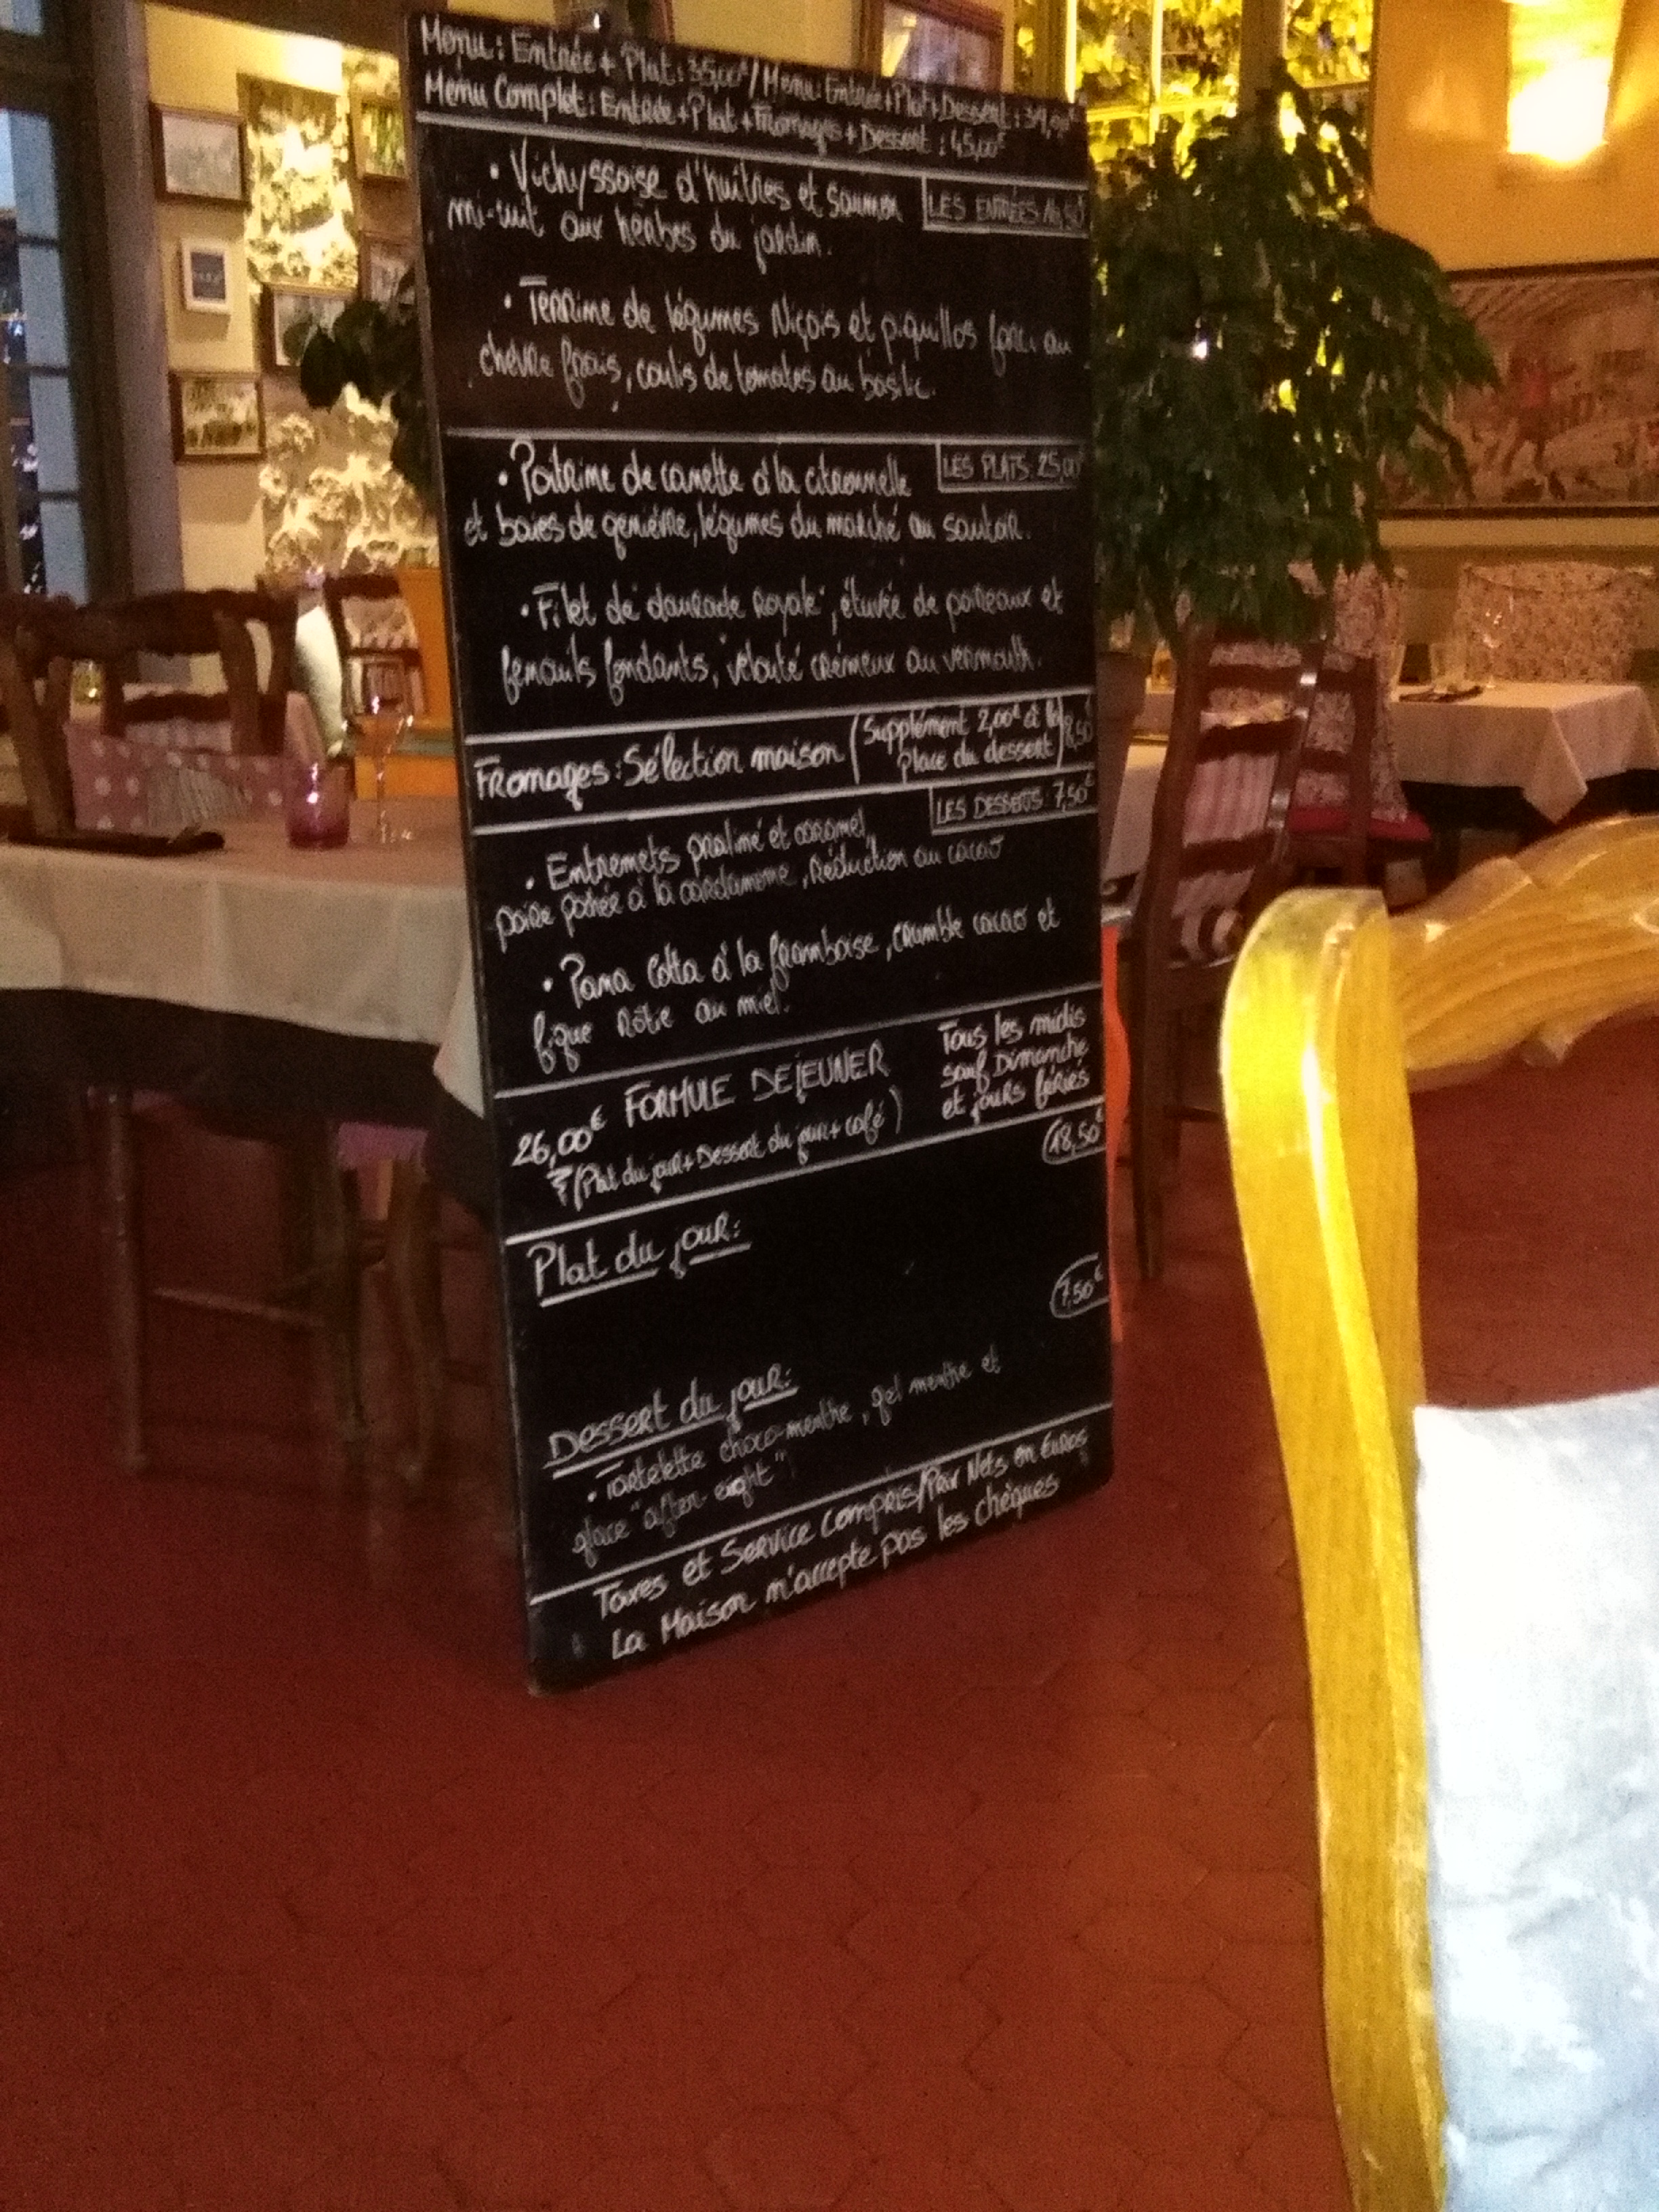 Menu: Entrée + Plat: 35,00€ / Menu: Entrée + Plat + Dessert: 39,00€
Menu Complet: Entrée + Plat + Fromages + Dessert : 45,00€
• Vichyssoise d'huîtres et saumon
LES ENTRÉES
mi-cuit aux herbes du jardin.
• Terrine de légumes Niçois et piquillos farci au
chèvre frais, coulis de tomates au basilic.
• Poitrine de canette à la citronnelle
LES PLATS: 25,00
et baies de genièvre, légumes du marché au sautoir.
• Filet de daurade "royale", étuvée de poireaux et
fenouils fondants, velouté crémeux au vermouth.
Fromages: Sélection maison (Supplément 2,00€ à la
place du dessert) 8,50€
LES DESSERTS: 7,50€
• Entremets praliné et caramel,
poire pochée à la cardamome, Réduction au cacao
• Pana Cotta à la framboise, crumble cacao et
figue Rôtie au miel.
26,00€ FORMULE DEJEUNER
(Plat du jour + Dessert du jour + café)
Tous les midis
sauf Dimanche
et jours fériés
18,50€
Plat du jour:
7,50€
Dessert du jour:
• Tartelette choco-menthe, gel menthe et
glace "after eight"
Taxes et Service Compris / Prix Nets en Euros
La Maison n'accepte pas les chèques